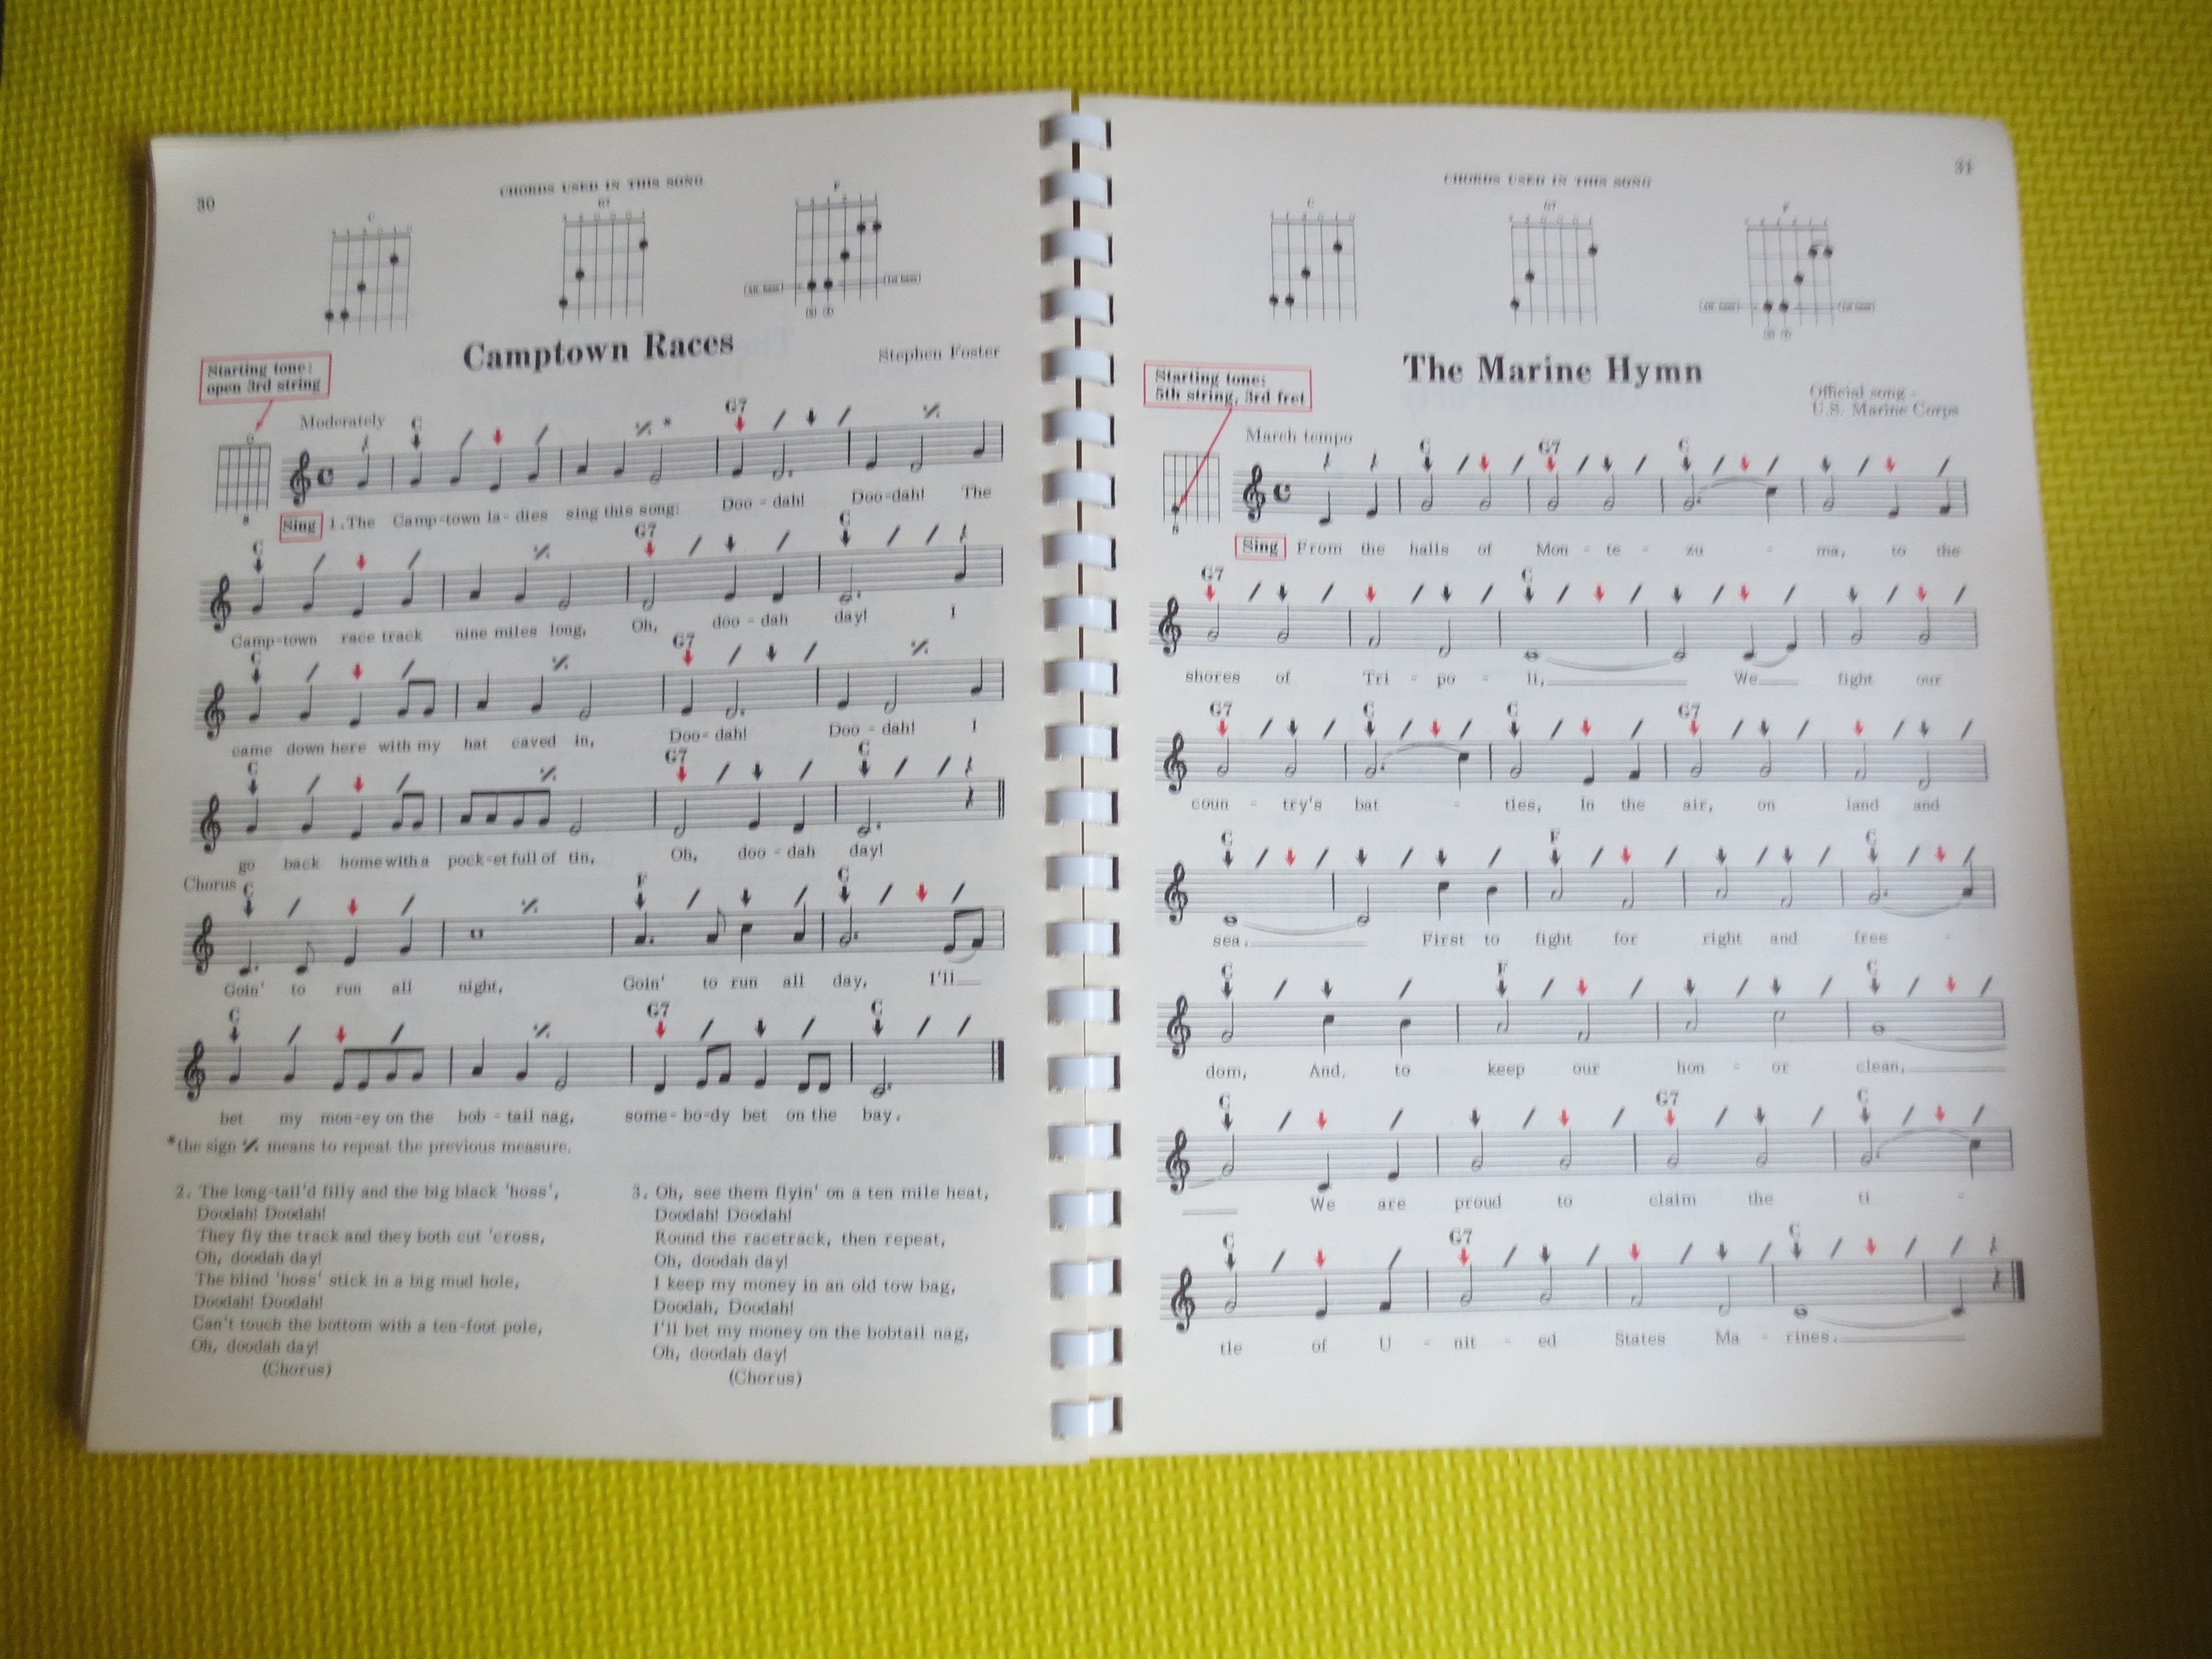 30
CHORDS USED IN THIS SONG
C G7 F
Camptown Races
Stephen Foster
Starting tone:
open 3rd string
Moderately
C G7
Sing 1. The Camp-town la-dies sing this song: Doo-dah! Doo-dah! The
C G7 C
Camp-town race track nine miles long, Oh, doo-dah day! I
C G7
came down here with my hat caved in, Doo-dah! Doo-dah! I
C G7 C
go back home with a pock-et full of tin, Oh, doo-dah day!
Chorus
C F C
Goin' to run all night, Goin' to run all day, I'll
C G7 C
bet my mon-ey on the bob-tail nag, some-bo-dy bet on the bay.
*the sign 𝄎 means to repeat the previous measure.
2. The long-tail'd filly and the big black 'hoss',
Doodah! Doodah!
They fly the track and they both cut 'cross,
Oh, doodah day!
The blind 'hoss' stick in a big mud hole,
Doodah! Doodah!
Can't touch the bottom with a ten-foot pole,
Oh, doodah day!
(Chorus)
3. Oh, see them flyin' on a ten mile heat,
Doodah! Doodah!
Round the racetrack, then repeat,
Oh, doodah day!
I keep my money in an old tow bag,
Doodah, Doodah!
I'll bet my money on the bobtail nag,
Oh, doodah day!
(Chorus)
31
CHORDS USED IN THIS SONG
C G7 F
The Marine Hymn
Official song -
U.S. Marine Corps
Starting tone:
5th string, 3rd fret
March tempo
C G7 C
Sing From the halls of Mon - te - zu - ma, to the
G7 C
shores of Tri - po - li, We fight our
G7 C C G7
coun - try's bat - tles, In the air, on land and
C F C
sea. First to fight for right and free -
C F C
dom, And, to keep our hon - or clean,
C G7 C
We are proud to claim the ti -
C G7 C
tle of U - nit - ed States Ma - rines.